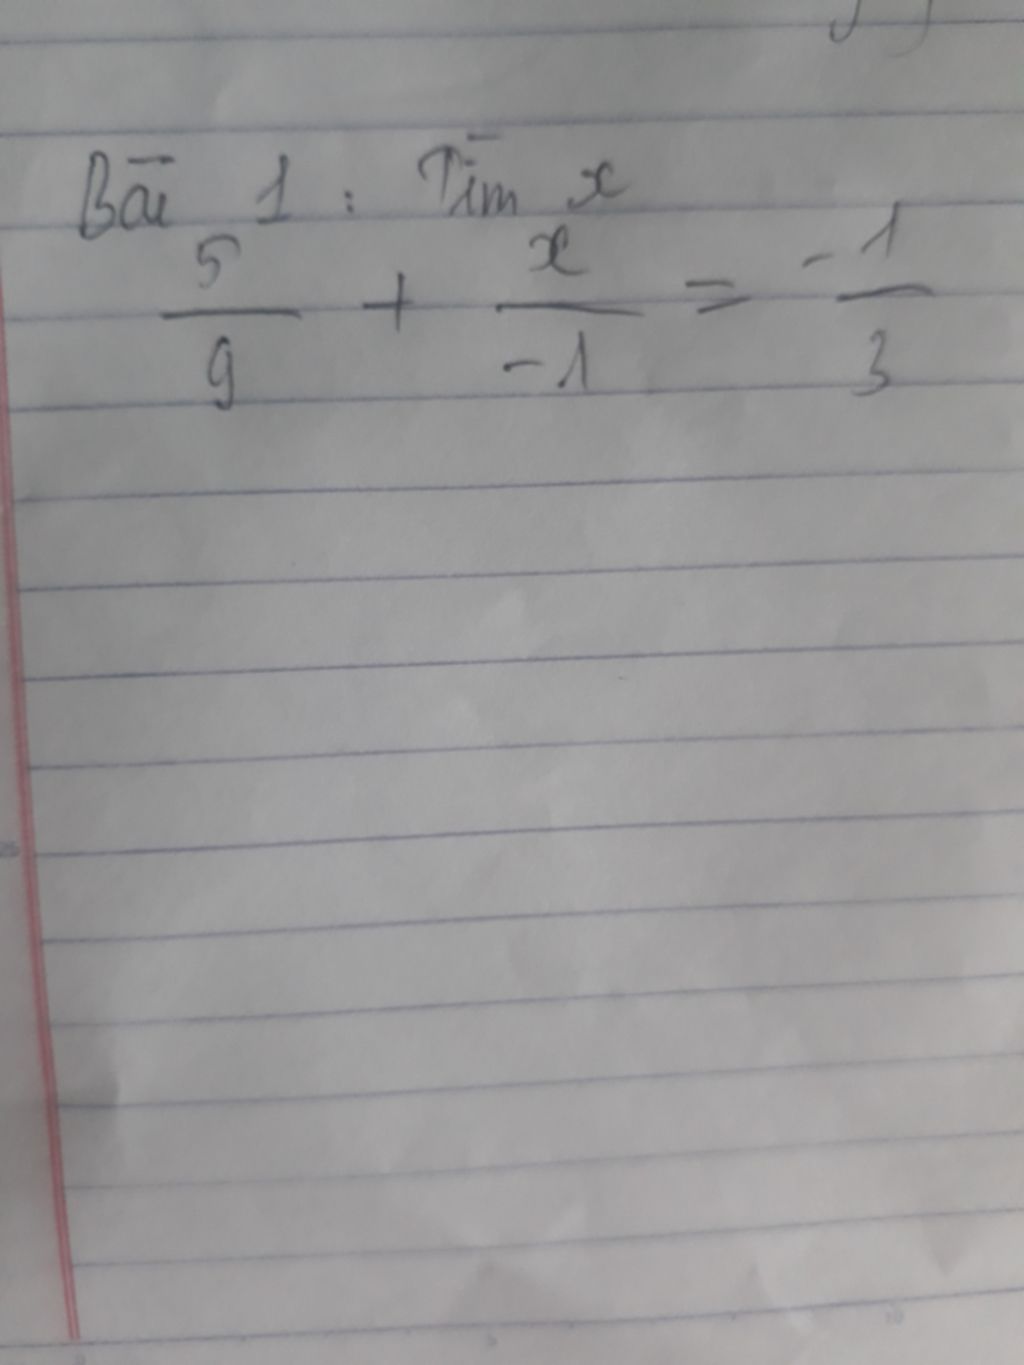 Bài 1 : Tìm x
5/9 + x/-1 = -1/3